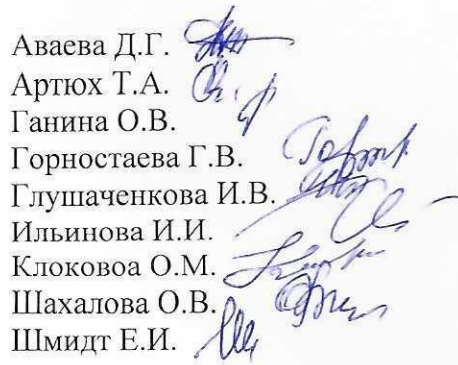 Аваева Д.Г.
Артюх Т.А.
Ганина О.В.
Горностаева Г.В.
Глушаченкова И.В.
Ильинова И.И.
Клоковоа О.М.
Шахалова О.В.
Шмидт Е.И.